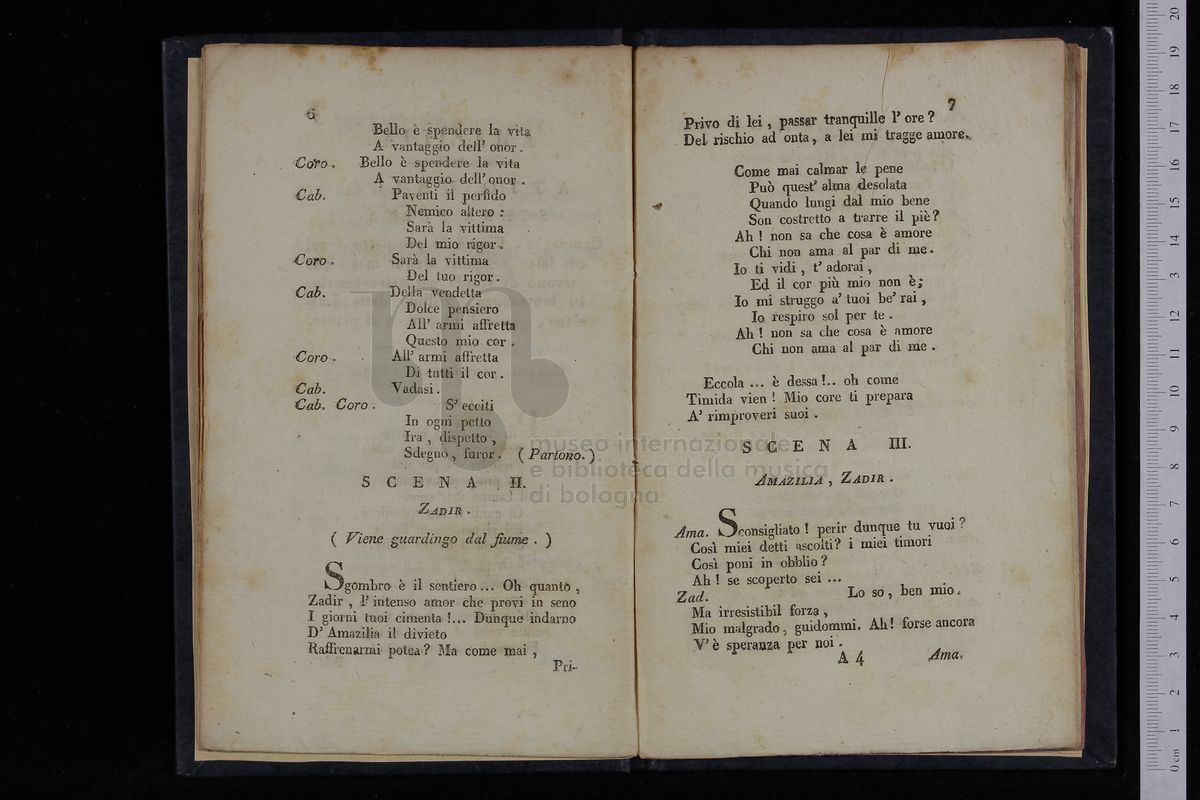 6
Bello è spendere la vita
A vantaggio dell' onor.
Coro. Bello è spendere la vita
A vantaggio dell' onor.
Cab. Paventi il perfido
Nemico altero:
Sarà la vittima
Del mio rigor.
Coro. Sarà la vittima
Del tuo rigor.
Cab. Della vendetta
Dolce pensiero
All' armi affretta
Questo mio cor.
Coro. All' armi affretta
Di tutti il cor.
Cab. Vadasi.
Cab. Coro. S' ecciti
In ogni petto
Ira, dispetto,
Sdegno, furor. (Partono.)
SCENA II.
ZADIR.
(Viene guardingo dal fiume.)
Sgombro è il sentiero... Oh quanto,
Zadir, l' intenso amor che provi in seno
I giorni tuoi cimenta!... Dunque indarno
D' Amazilia il divieto
Raffrenarmi potea? Ma come mai,
Pri-
7
Privo di lei, passar tranquille l' ore?
Del rischio ad onta, a lei mi tragge amore.
Come mai calmar le pene
Può quest' alma desolata
Quando lungi dal mio bene
Son costretto a trarre il piè?
Ah! non sa che cosa è amore
Chi non ama al par di me.
Io ti vidi, t' adorai,
Ed il cor più mio non è;
Io mi struggo a' tuoi be' rai,
Io respiro sol per te.
Ah! non sa che cosa è amore
Chi non ama al par di me.
Eccola ... è dessa!.. oh come
Timida vien! Mio core ti prepara
A' rimproveri suoi.
SCENA III.
AMAZILIA, ZADIR.
Ama. Sconsigliato! perir dunque tu vuoi?
Così miei detti ascolti? i miei timori
Così poni in obblio?
Ah! se scoperto sei ...
Zad. Lo so, ben mio.
Ma irresistibil forza,
Mio malgrado, guidommi. Ah! forse ancora
V' è speranza per noi.
A 4 Ama.
museo internazionale
e biblioteca della musica
di bologna
0 cm 1 2 3 4 5 6 7 8 9 10 11 12 13 14 15 16 17 18 19 20